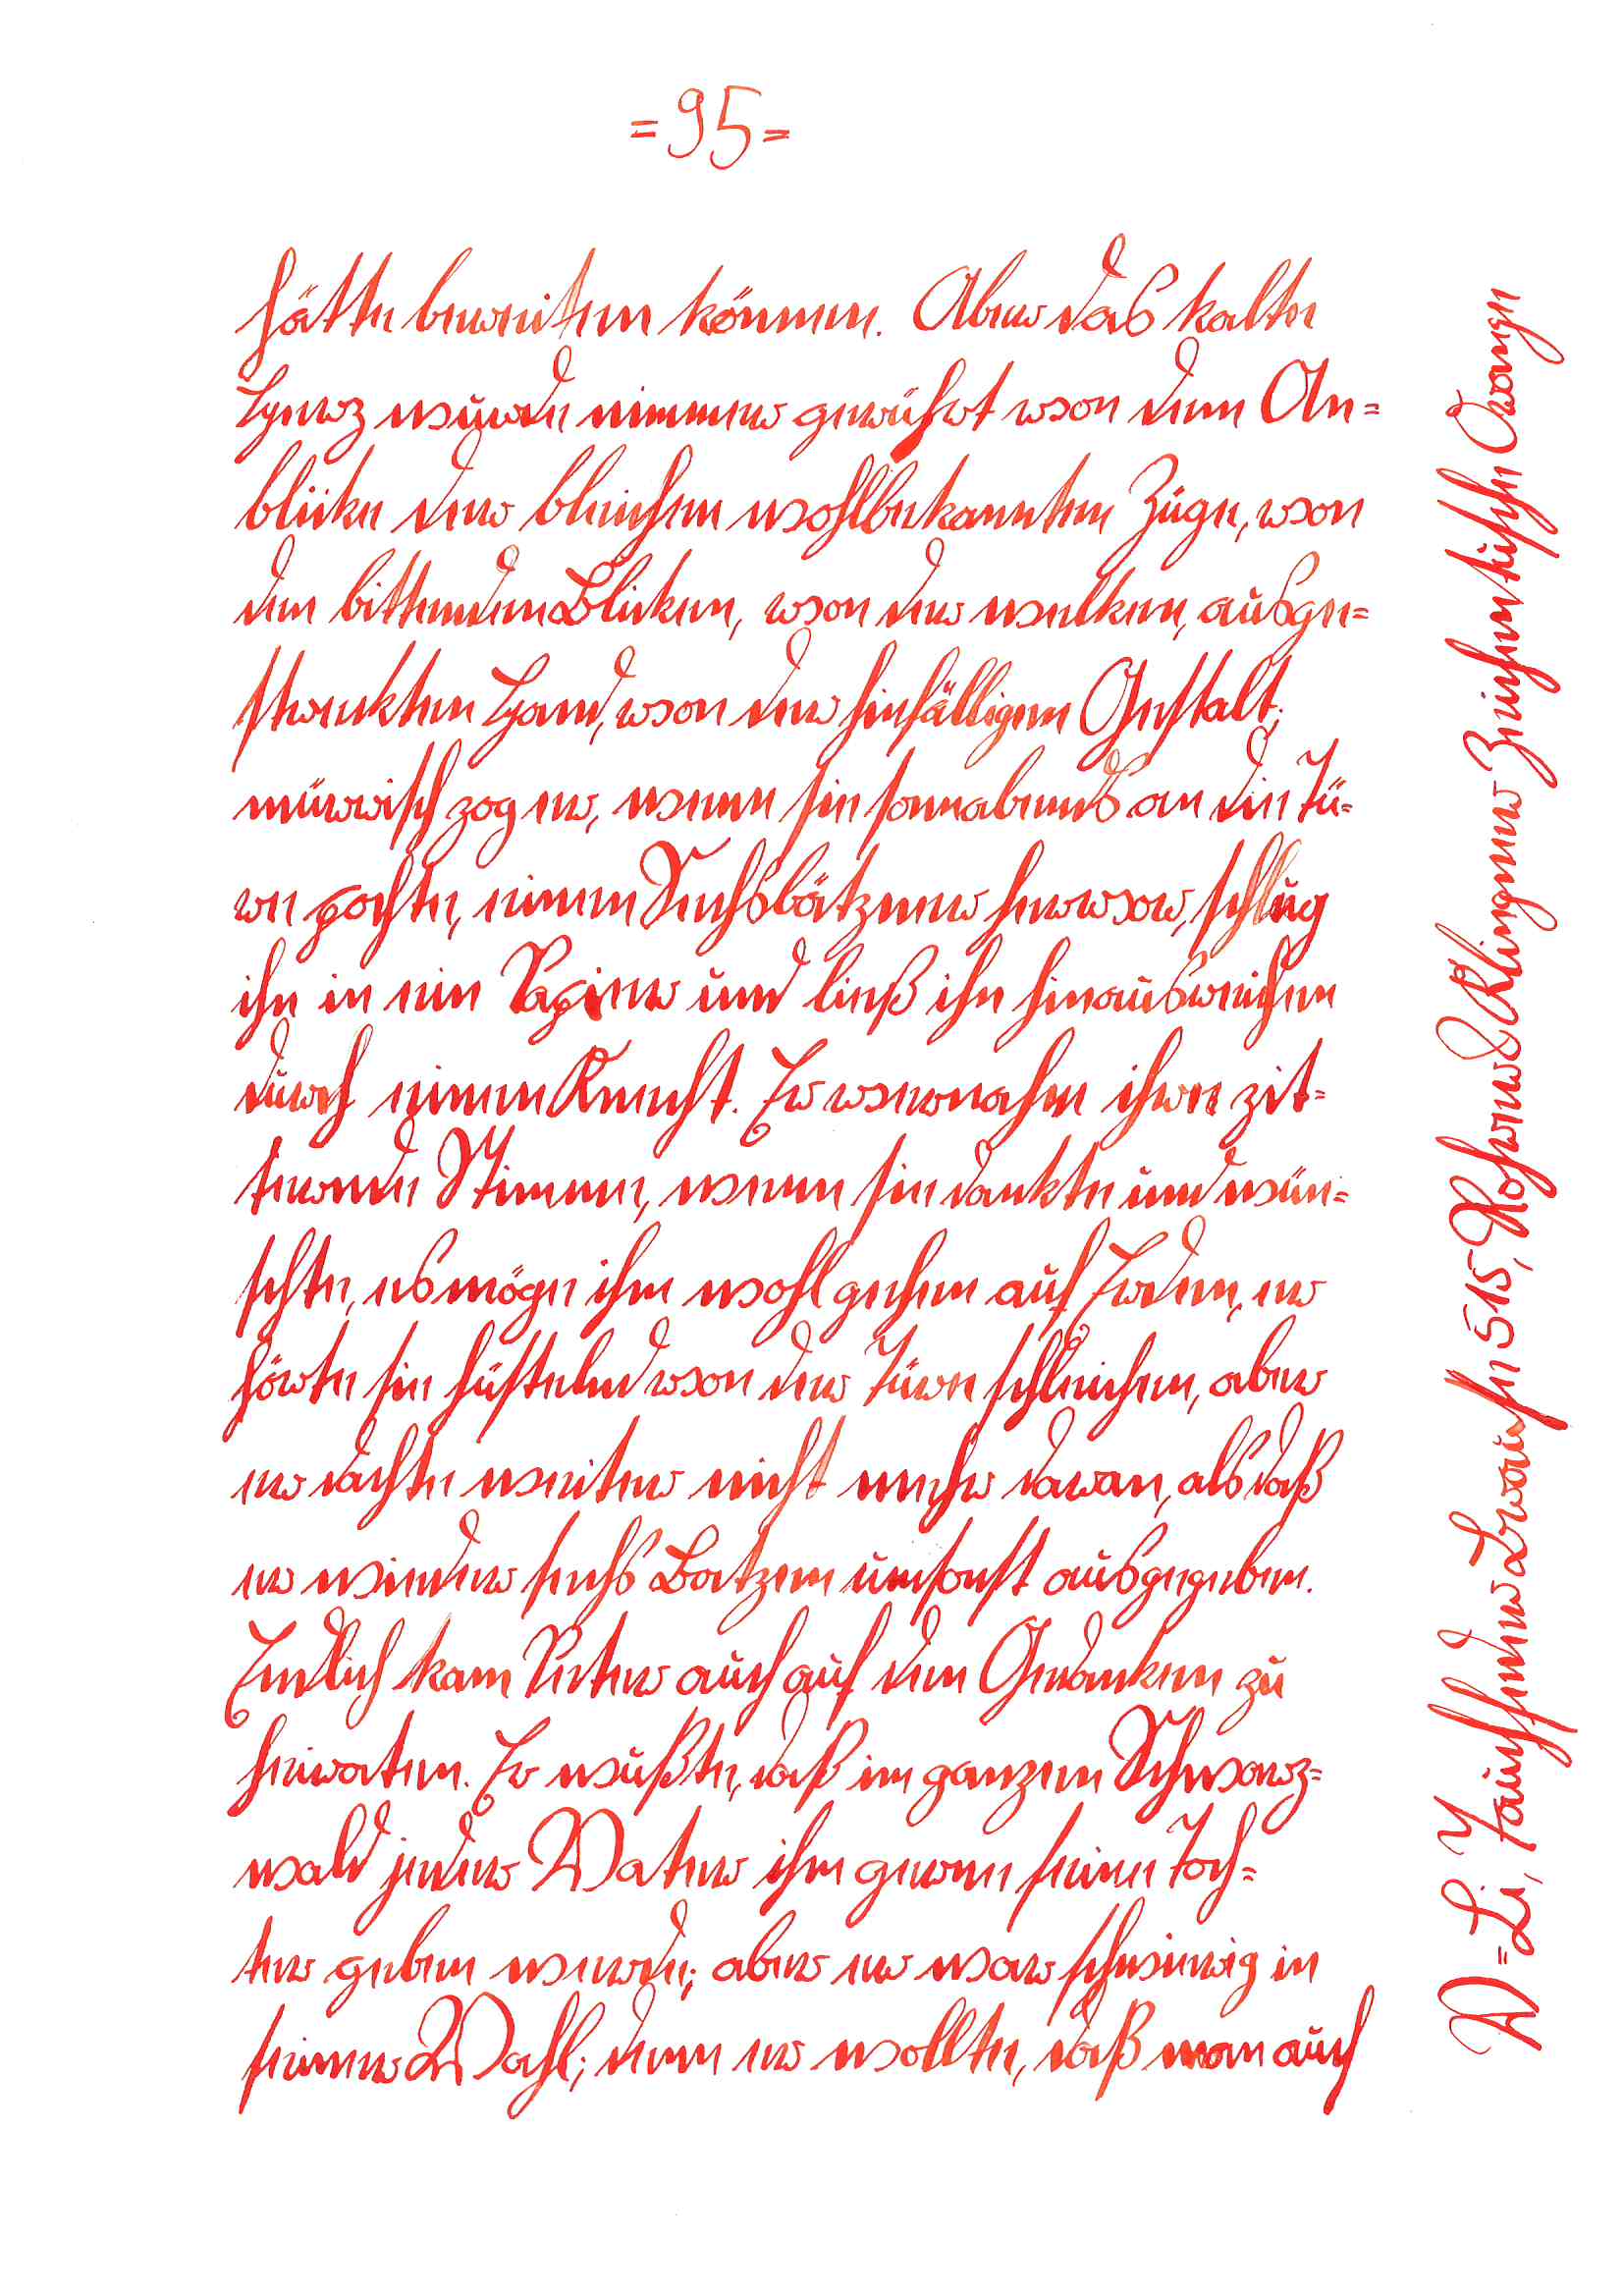 =95=
hätte bereiten können. Aber das kalte
Herz wurde nimmer gerührt von dem An=
blicke der bleichen wohlbekannten Züge, von
den bittenden Blicken, von der welken, ausge=
streckten Hand, von der hinfälligen Gestalt;
mürrisch zog er, wenn sie sonnabends an die Tü=
re pochte, einen Sechsbätzner hervor, schlug
ihn in ein Papier und ließ ihn hinausreichen
durch einen Knecht. Er vernahm ihre zit=
ternde Stimme, wenn sie dankte und wün=
schte, es möge ihm wohl gehen auf Erden, er
hörte sie hüstelnd von der Türe schleichen, aber
er dachte weiter nicht mehr daran, als daß
er wieder sechs Batzen umsonst ausgegeben.
Endlich kam Peter auch auf den Gedanken zu
heiraten. Er wußte, daß im ganzen Schwarz=
wald jeder Vater ihm gerne seine Toch=
ter geben werde; aber er war schwierig in
seiner Wahl; denn er wollte, daß man auch
W=Li, Tauchfeder Brause 515, Rohrer&Klingner Zeichentusche Orange